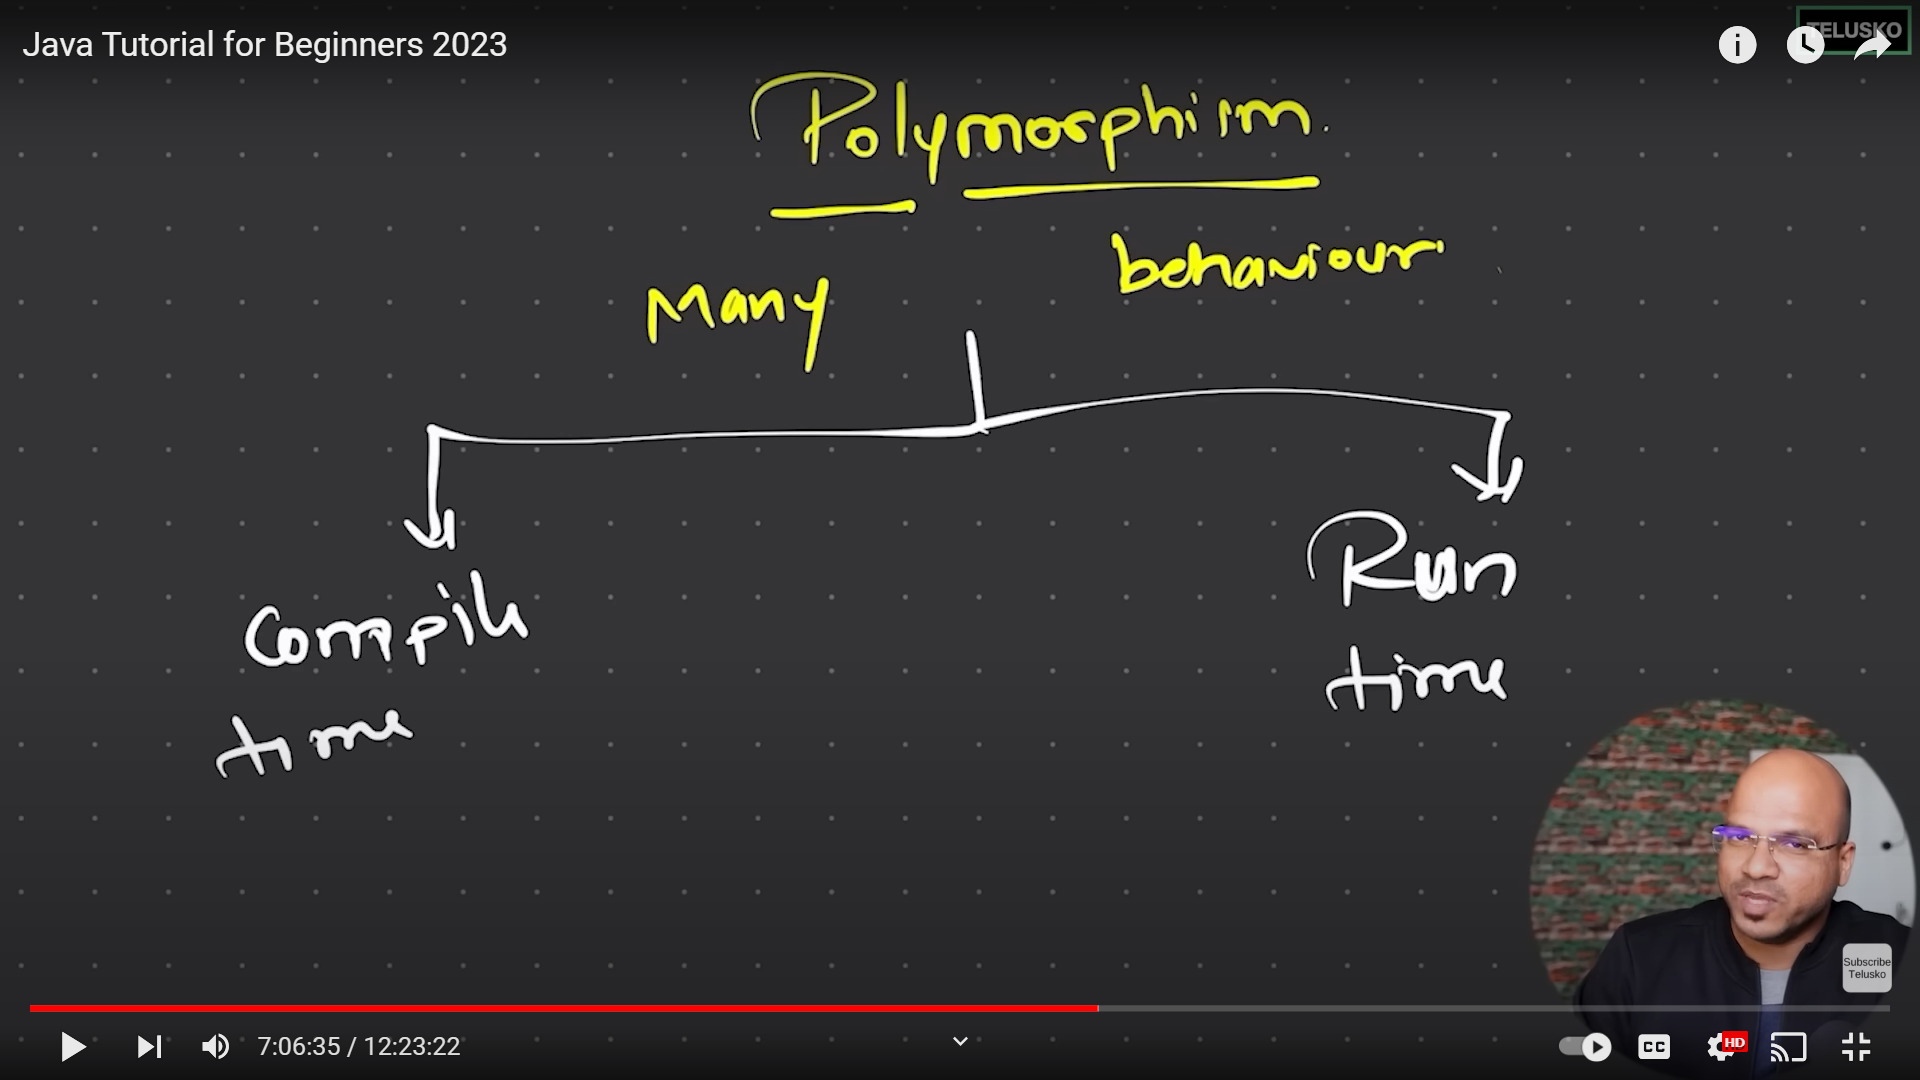 Java Tutorial for Beginners 2023
TELUSKO
Polymorphism.
Many
behaviour
Compile
time
Run
time
Subscribe
Telusko
7:06:35 / 12:23:22
CC
HD